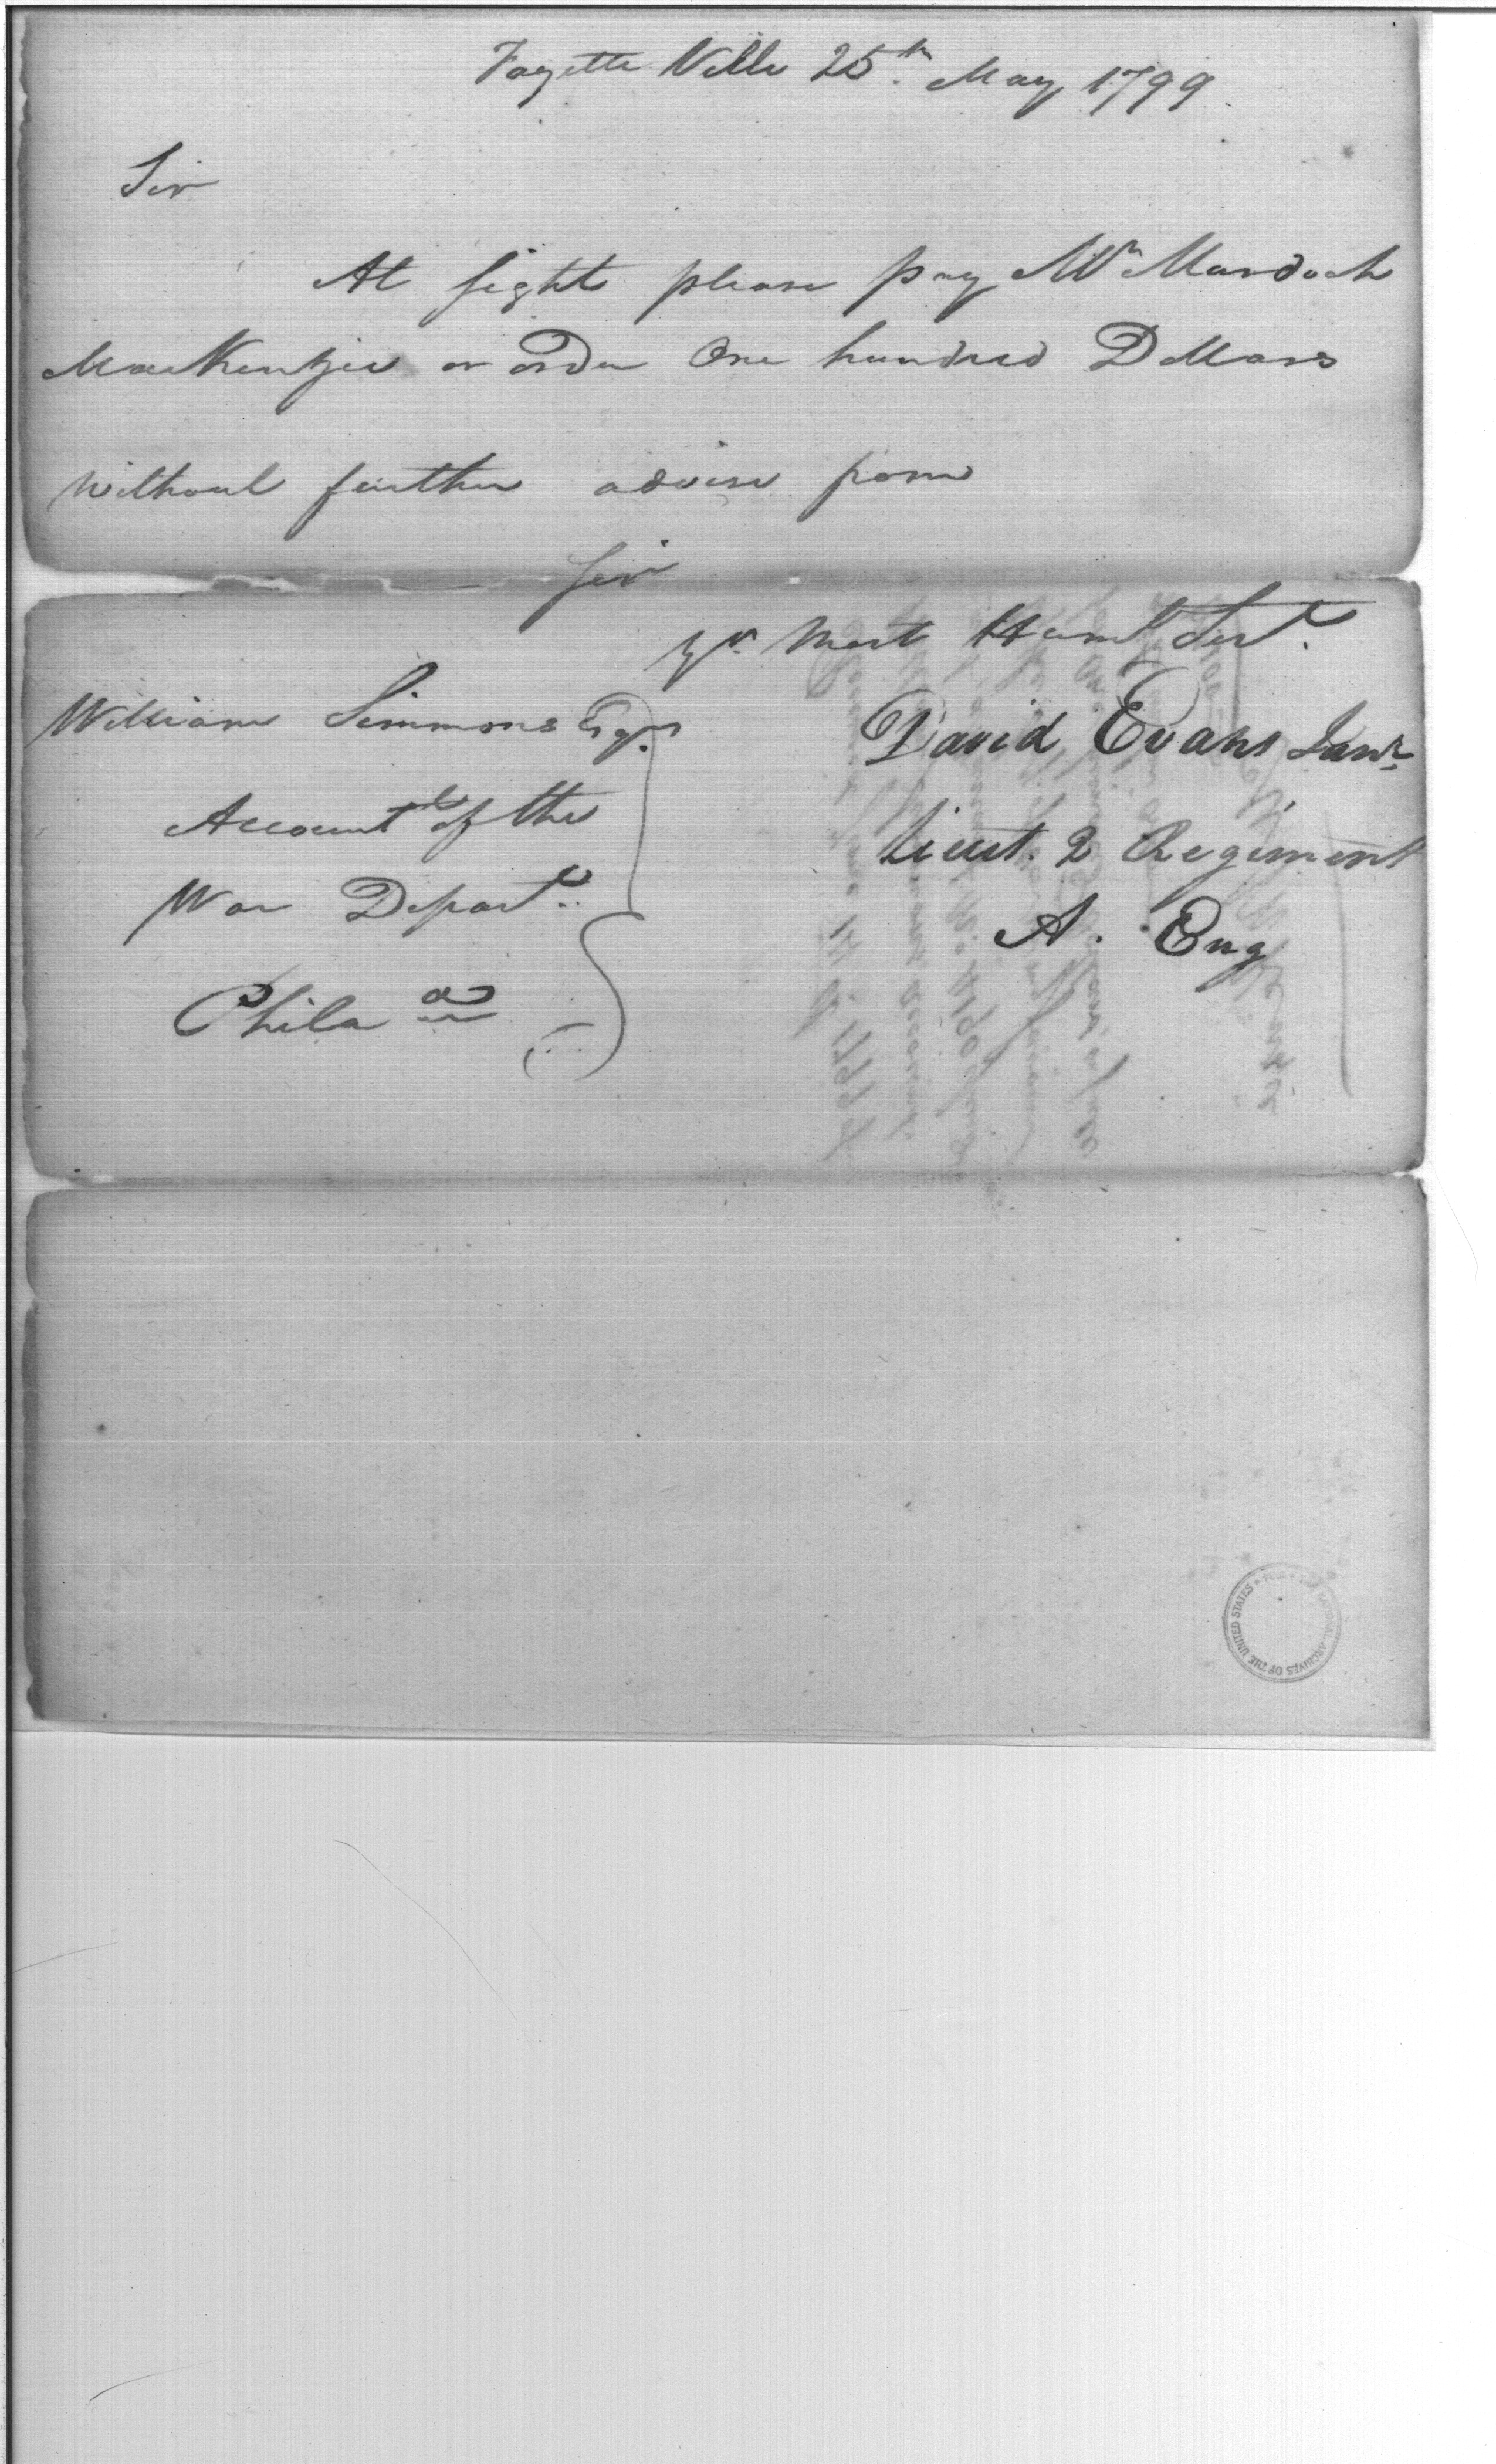 Fayette Ville 25th May 1799
Sir
At sight please pay Mr Murdoch
MacKenzie or order One hundred Dollars
without further advise from
Sir
Yr Most Huml Sert.
William Simmons Esqr.
Accountt of the
War Depart.
Phila a
David Evans Junr.
Lieut. 2 Regiment
A. Eng
NATIONAL ARCHIVES OF THE UNITED STATES